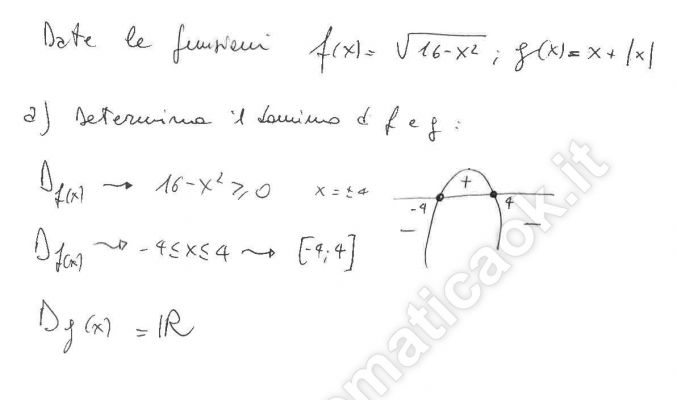 Date le funzioni f(x)= √16-x² ; g(x)= x + |x|
a) Determina il dominio d f e g :
D f(x) → 16-x² ≥ 0 x = ±4
+
-4 4
- -
D f(x) → -4 ≤ x ≤ 4 → [-4; 4]
D g(x) = ℝ
ematicaok.it